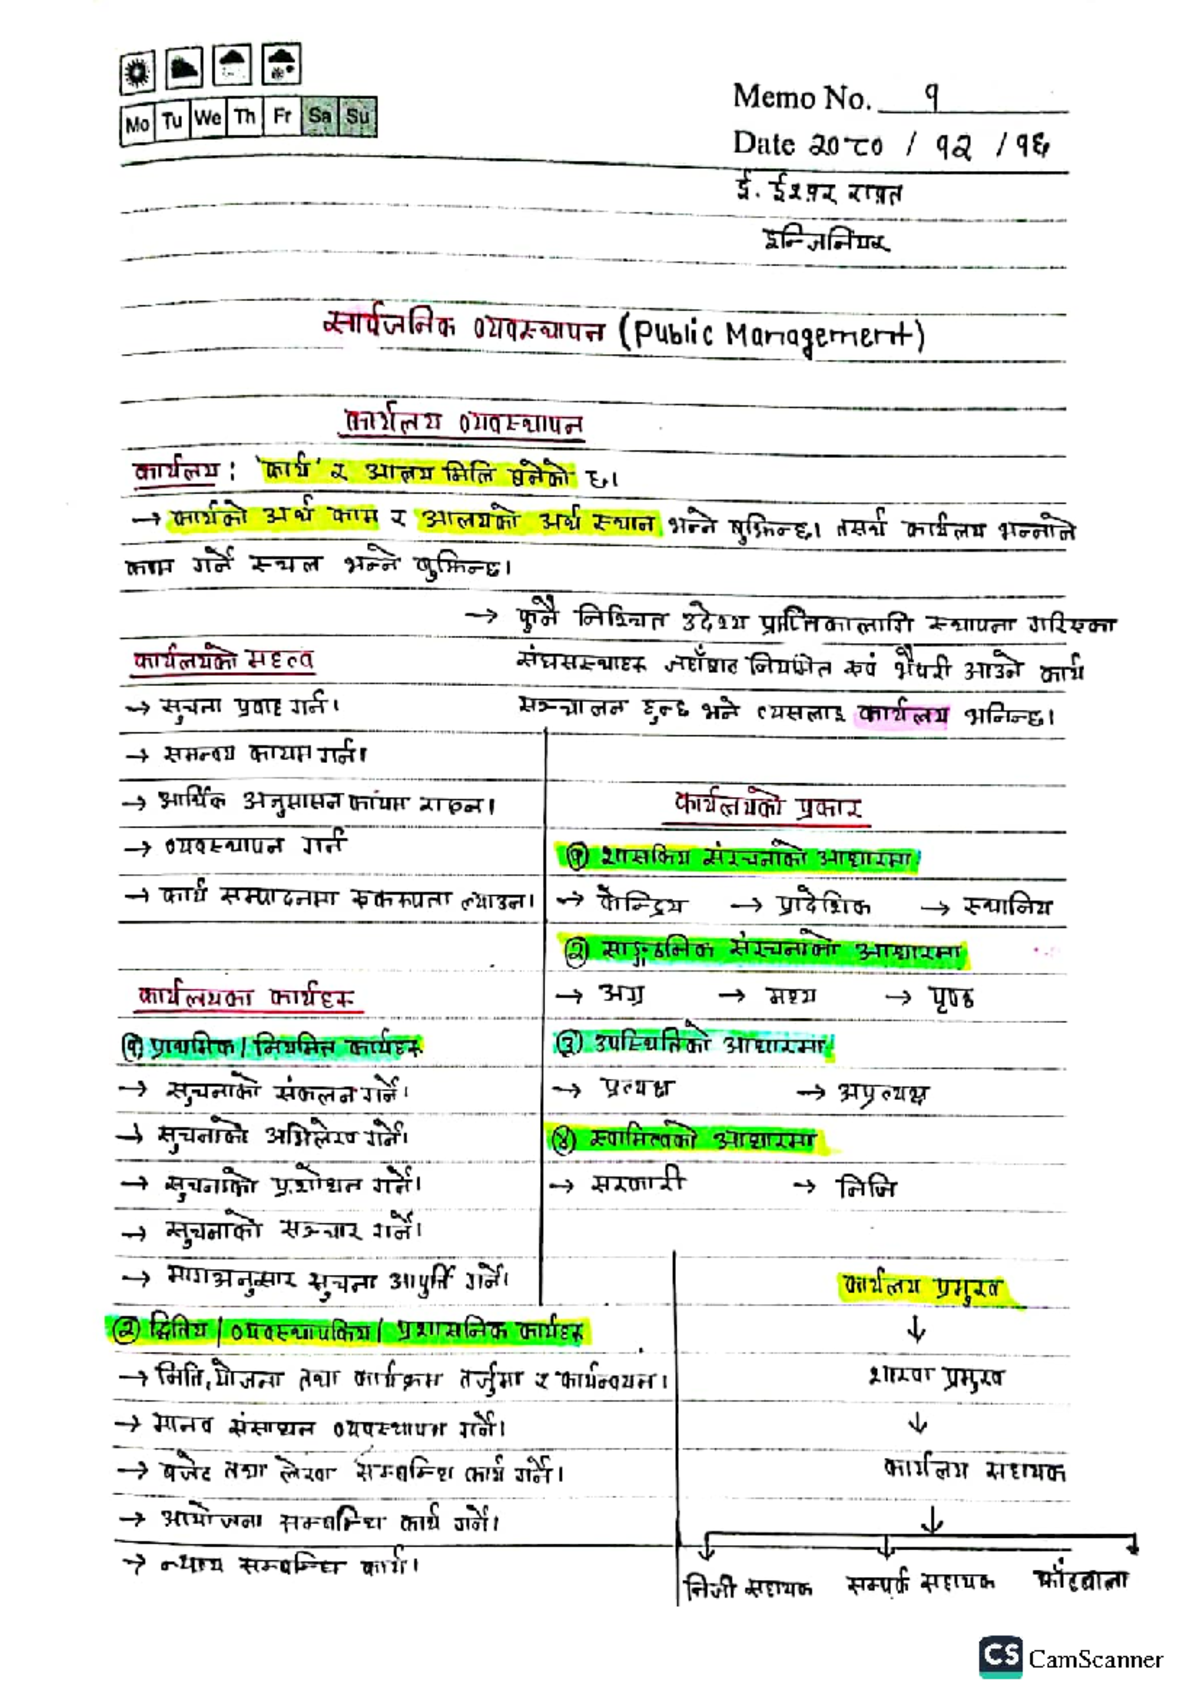 Mo Tu We Th Fr Sa Su
Memo No. १
Date २०८० / १२ / १६
ई. ईश्वर रावत
इन्जिनियर
सार्वजनिक व्यवस्थापन (Public Management)
कार्यलय व्यवस्थापन
कार्यलय : 'कार्य' र आलय मिलि बनेको छ।
→ कार्यको अर्थ काम र आलयको अर्थ स्थान भन्ने बुझिन्छ। तसर्थ कार्यलय भन्नाले
काम गर्ने स्थल भन्ने बुझिन्छ।
→ कुनै निश्चित उदेश्य प्राप्तिकालागि स्थापना गरिएका
संघसस्थाहरु जहाँबाट नियमित एवं भैपरी आउने कार्य
सञ्चालन हुन्छ भने त्यसलाइ कार्यलय भनिन्छ।
कार्यलयको महत्व
→ सुचना प्रवाह गर्न।
→ समन्वय कायम गर्न।
→ आर्थिक अनुसासन कायम राख्न।
→ व्यवस्थापन गर्न
→ कार्य सम्पादनमा एकरुपता ल्याउन।
कार्यलयको प्रकार
(१) शासकिय संरचनाको आधारमा
→ केन्द्रिय → प्रादेशिक → स्थानिय
(२) साङ्गठनिक संरचनाको आधारमा
→ अग्र → मध्य → पृष्ठ
(३) उपस्थितिको आधारमा
→ प्रत्यक्ष → अप्रत्यक्ष
(४) स्वामित्वको आधारमा
→ सरकारी → निजि
कार्यलयका कार्यहरु
(१) प्राथमिक / नियमित कार्यहरु
→ सुचनाको संकलन गर्ने।
→ सुचनाको अभिलेख गर्ने।
→ सुचनाको प्रशोधन गर्ने।
→ सुचनाको सञ्चार गर्ने।
→ मागअनुसार सुचना आपुर्ति गर्ने।
(२) द्वितिय / व्यवस्थापकिय / प्रशासनिक कार्यहरु
→ निति, योजना तथा कार्यक्रम तर्जुमा र कार्यन्वयन।
→ मानव संसाधन व्यवस्थापन गर्ने।
→ बजेट तथा लेखा सम्बन्धि कार्य गर्ने।
→ आयोजना सम्बन्धि कार्य गर्ने।
→ न्याय सम्बन्धि कार्य।
कार्यलय प्रमुख
↓
शाखा प्रमुख
↓
कार्यलय सहायक
↓
निजी सहायक सम्पर्क सहायक फाँटवाला
CS CamScanner